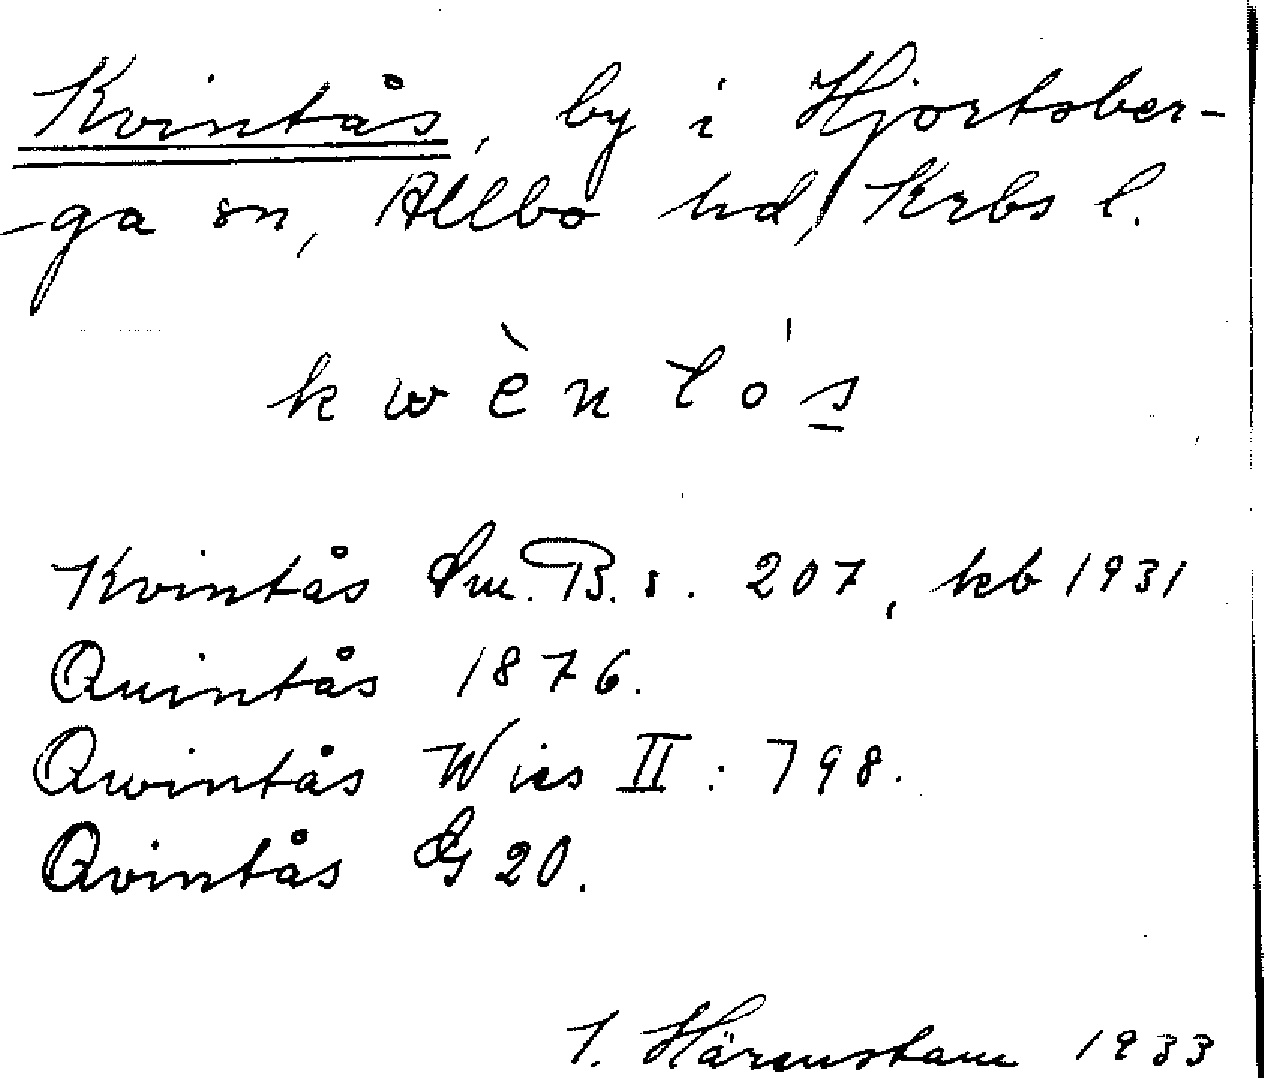 Kvintås, by i Hjortsber-
ga sn, Allbo hd, Krbs l.
kwèntó̍s̲
Kvintås Sm. B. s. 207, kb 1931
Quintås 1876.
Qwintås Wies II: 798.
Qvintås G 20.
I. Härenstam 1933